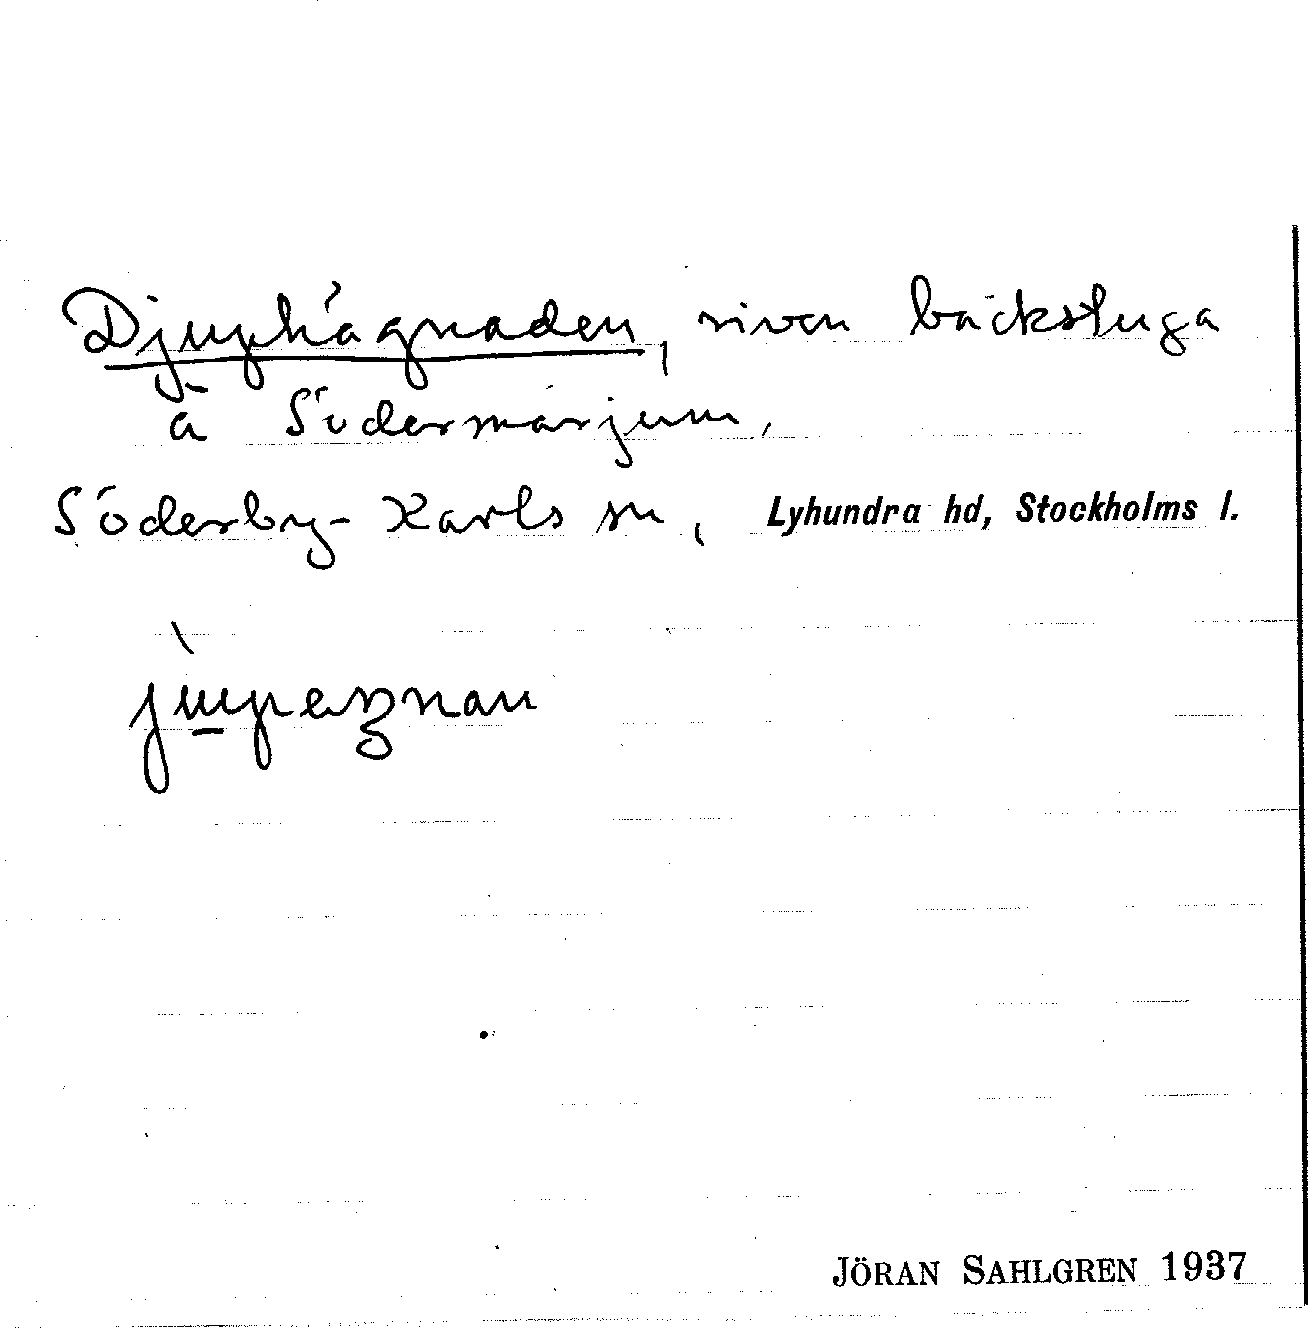 Djuphägnaden, riven backstuga
å Södermärjum,
Söderby-Karls sn, Lyhundra hd, Stockholms l.
JÖRAN SAHLGREN 1937